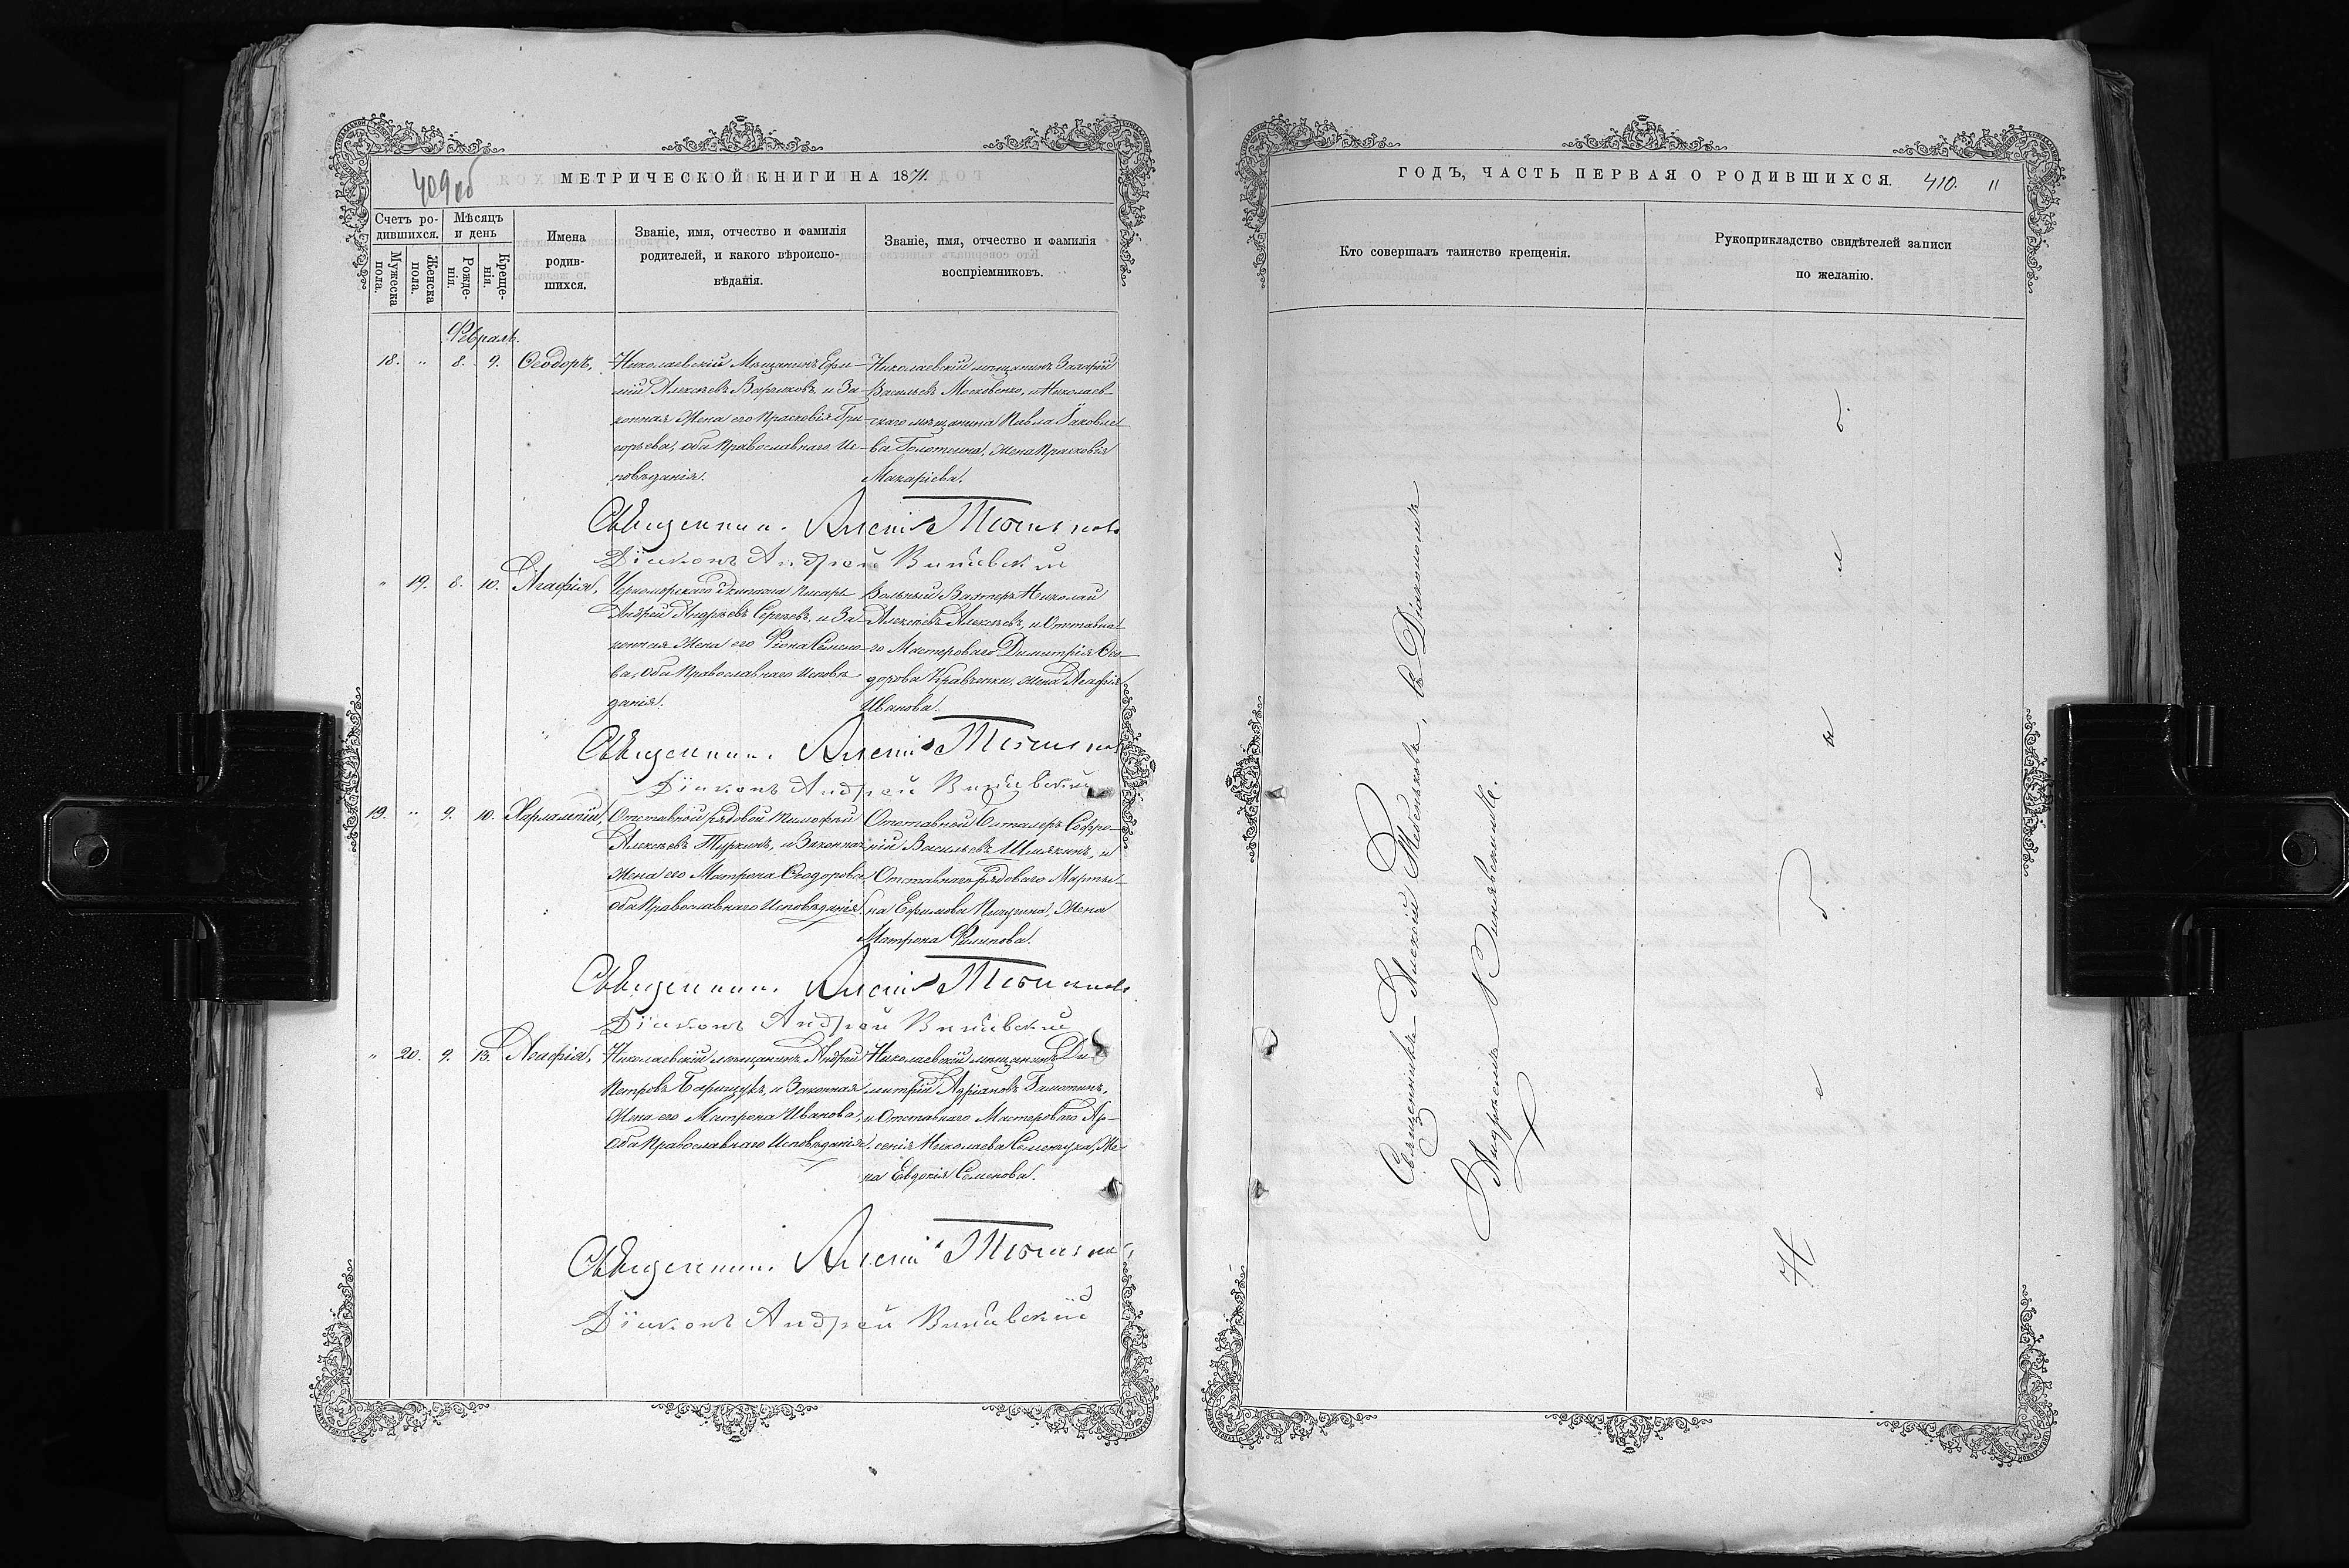 409 об
МЕТРИЧЕСКОЙ КНИГИ НА 1871.
Счетъ ро-
дившихся.
Мѣсяцъ
и день
Мужеска
пола.
Женска
пола.
Рожде-
нія.
Креще-
нія.
Имена
родив-
шихся.
Званіе, имя, отчество и фамилія
родителей, и какого вѣроиспо-
вѣданія.
Званіе, имя, отчество и фамилія
воспріемниковъ.
Февраль.
18. " 8. 9. Ѳеодоръ,
Николаевскій Мѣщанинъ Ефи-
мій Алексѣевъ и За-
конная Жена его Прасковія Гри-
горьева, оба Православнаго Ис-
повѣданія.
Николаевскій мѣщанинъ Захарій
Васильевъ Московенко, и Николаев-
скаго мѣщанина Павла Яковле-
ва жена Прасковія
Макаріева.
Священник Алексій Тебеньковъ
Діаконъ Андрей Винявскій
" 19. 8. 10. Агафія,
Черноморскаго Экипажа писарь
Андрей Андреевъ Сергѣевъ, и За-
конная Жена его Ѳіона Семено-
ва, Оба Православнаго Исповѣ
данія.
Вольный Вахтеръ Николай
Алексѣевъ Алексѣевъ, и Отставна-
го Мастероваго Димитрія Ѳео-
дорова Кравченки, жена Агафія
Иванова.
Священник Алексій Тебеньковъ
Діаконъ Андрей Винявскій
19. " 9. 10. Харлампій,
Отставной рядовой Тимофей
Алексѣевъ Туркинъ, и Законная
Жена его Матрона Ѳеодорова,
оба Православнаго Исповѣданія.
Отставной Софро-
ній Васильевъ Шишкинъ, и
Отставнаго рядоваго Марты-
на Ефимова Пичугина, Жена
Матрона Филипова.
Священник Алексій Тебеньковъ
Діаконъ Андрей Винявскій
" 20. 9. 13. Агафія,
Николаевскій мѣщанинъ Андрей
Петровъ Барищукъ, и Законная
Жена его Матрона Иванова,
Оба Православнаго Исповѣданія.
Николаевскій мѣщанинъ Ди-
митрій Адріановъ Галоттинъ,
и Отставнаго Мастероваго Ар-
сенія Николаева Семенчука, Же-
на Евдокія Семенова.
Священник Алексій Тебеньковъ
Діаконъ Андрей Винявскій
ГОДЪ, ЧАСТЬ ПЕРВАЯ О РОДИВШИХСЯ. 410. 11
Кто совершалъ таинство крещенія.
Рукоприкладство свидѣтелей записи
по желанію.
Священникъ Алексій Тебеньковъ, съ Діакономъ
Андреемъ Винявскимъ.
Не было.